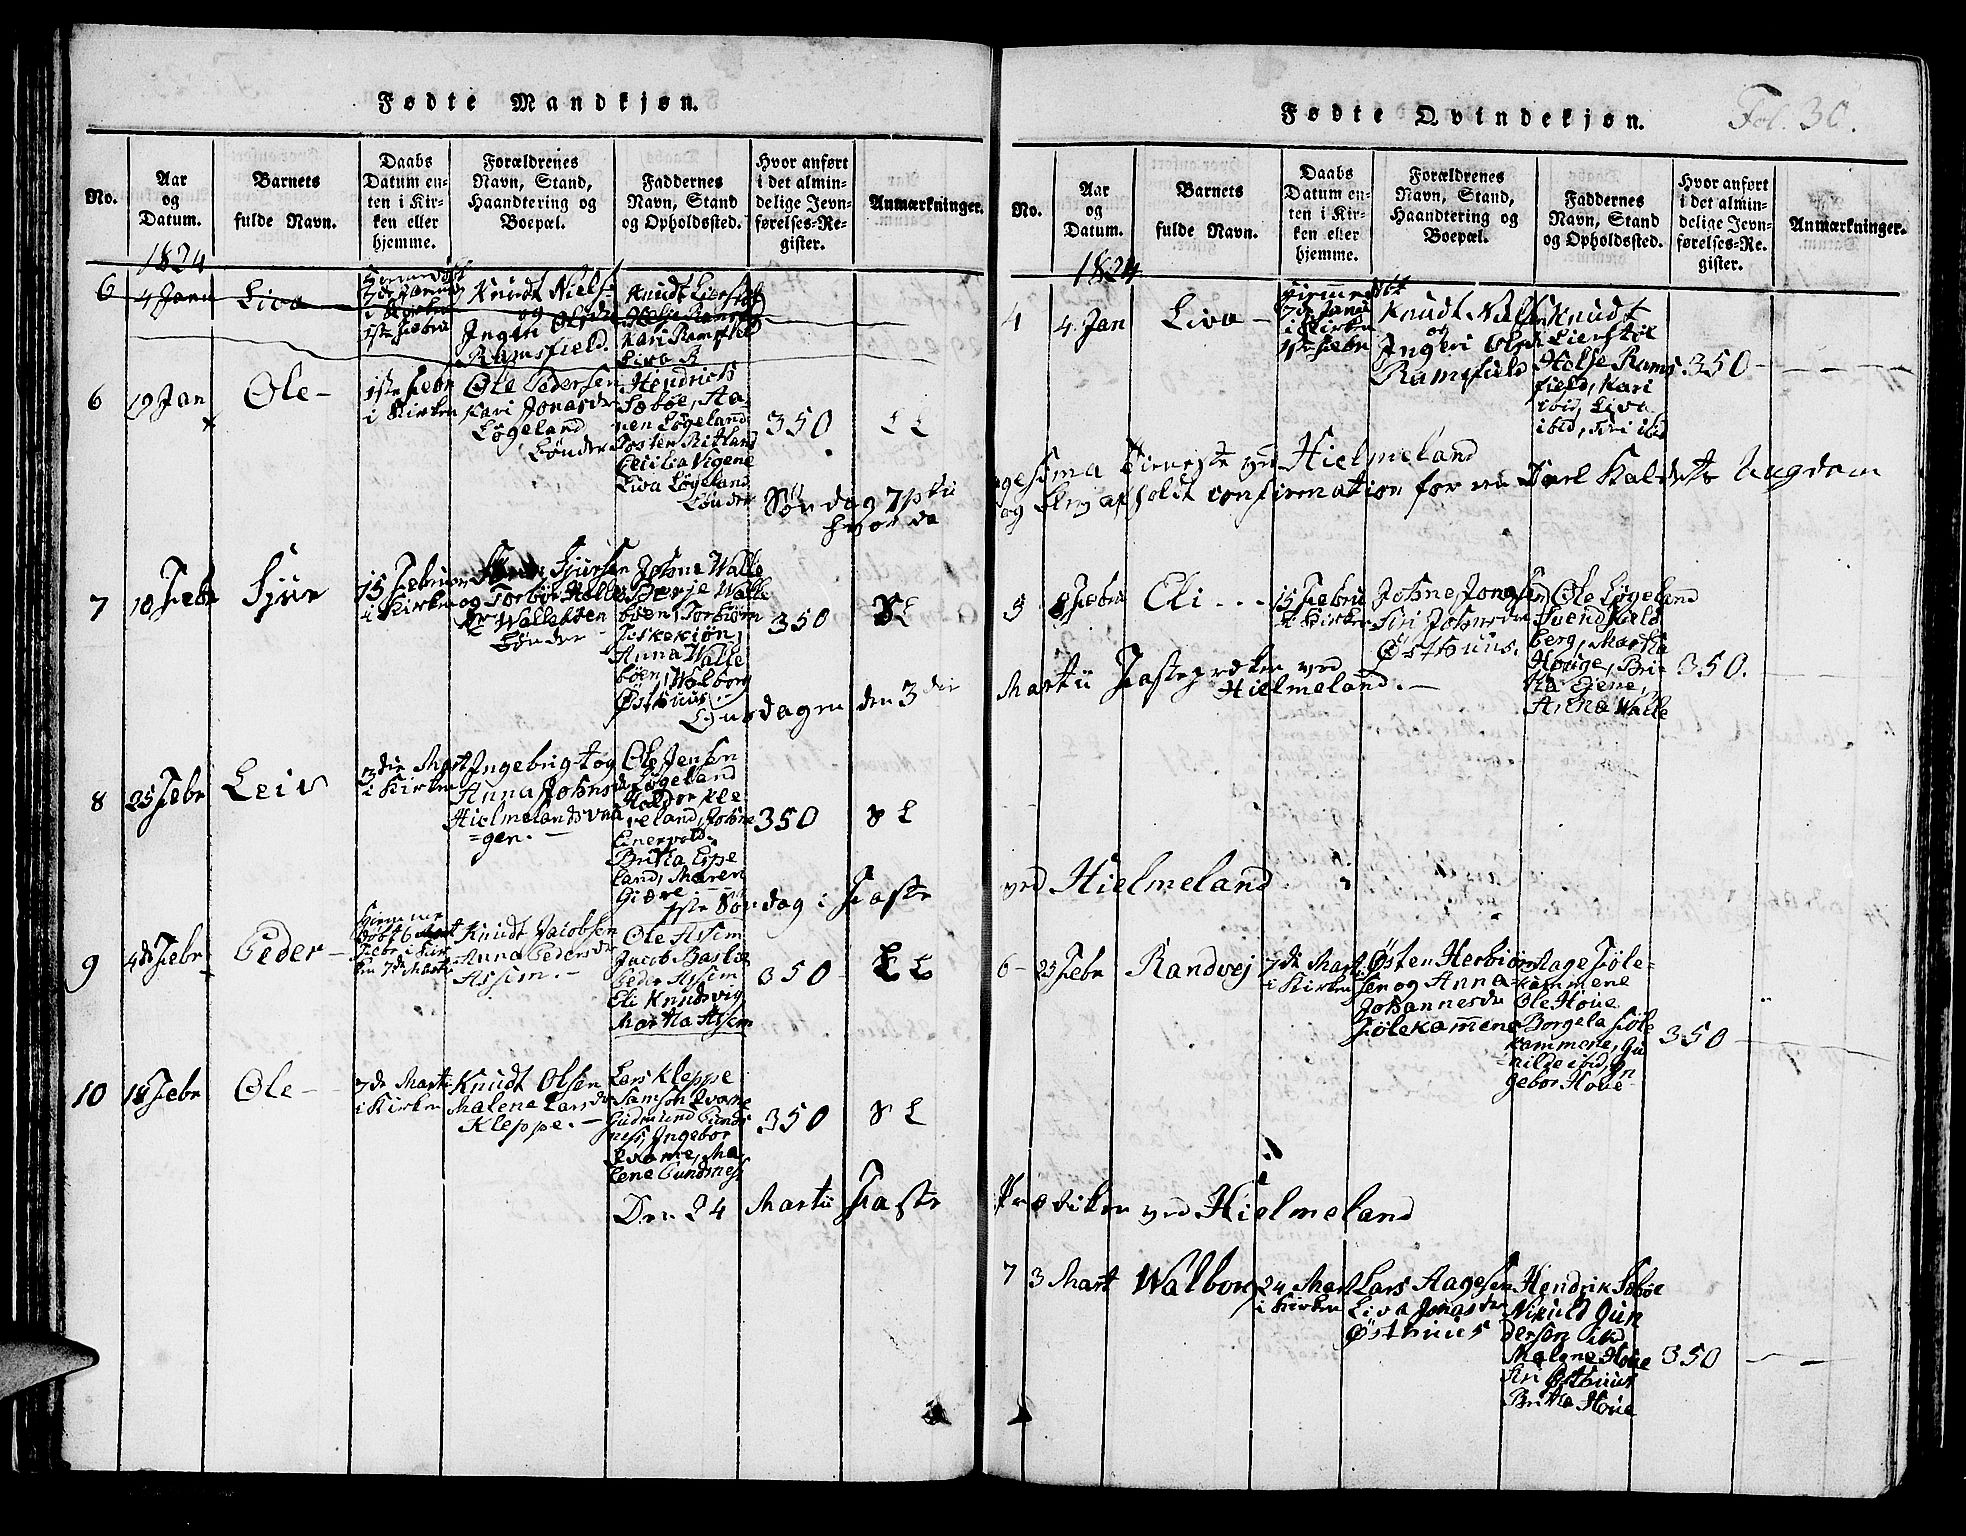 Fødte Mandkjøn.
No.
Aar
og
Datum.
Barnets
fulde Navn.
Daabs
Datum en-
ten i Kir-
ken eller
hjemme.
Forældrenes
Navn, Stand,
Haandtering og
Boepæl.
Faddernes
Navn, Stand
og Opholdssted.
Hvor anført
i det almin-
delige Jevn-
førelses-Re-
gister.
Anmærkninger.
1824
6
4 Janu
Liva
hjemmedøbt
7de Janu
i Kirken
1ste Febru
Knudt Niels
og
Ingeri Olsdr
Ramsfield.
Knudt Lierstøl
Helje Ramsf
Kari Ramsfiel
Liva R
6
19 Jan
Ole
1ste Febr
i Kirken
Ole Pedersen
Kari Jonasdr
Løgeland
Lønder
Hendrich
Sæbøe, Aa-
nen Løgeland
Tosten Ritland
Cecilia Vigene
Liva Løgeland
Lønder
350
LL
Søndag 7ptu
hvor da
7
10 Febr
Sjur
15 Februar
i Kirken
Sjursen
og Torbør
Walleböen
Lønder
Johne Walle
Berje Walle
böen, Torbiörn
Fiskekiön,
Anna Walle
böen, Walborg
Østhuus.
350
SL
Tjursdagen den 3die
8
25 Febr
Leiv
3die Mart
i Kirken
Ingebrigt og
Anna Johnsdr
Hielmelandsvaa
=gen.
Ole Jensen
Løgeland
Haldor Kle
veland, Johne
Enervold
Britha Espe
land, Maren
Giære
350
SL
1ste Søndag i Faste
9
4de Febr
Peder
hjemme
døbt 6
Febr i Kir
ken 7de Marti
Knudt Jacobsen
Anna Pedersdr
Assem.
Ole Assem
Jacob Bastlie
Peder Assem
Eli Knudsvig
Martha Assem
350
LL
10
18 Febr
Ole
7de Marti
i Kirken
Knudt Olsen
Malene Larsdr
Kleppe.
Lars Kleppe
Samson Qvame
Gudmund Pundts
nes, Ingebor
Qvame, Ma
lene Pundsnes
350
SL
Den 24 Martii Faste
Fødte Qvindekjøn.
Fol. 30.
No.
Aar
og
Datum.
Barnets
fulde Navn.
Daabs
Datum en-
ten i Kir-
ken eller
hjemme.
Forældrenes
Navn, Stand,
Haandtering og
Boepæl.
Faddernes
Navn, Stand
og Opholdssted.
Hvor anført
i det almin-
delige Jevn-
førelses-Re-
gister.
Anmærkninger.
1824
4
4 Jan
Liva
hiemmedøbt
7de Janu
i Kirken
1ste Febr
Knudt Nielsen
og
Ingeri Olsdr
Ramsfield
Knudt
Lierstöl
Helje Rams
field, Kari
ibid, Liva
ibid, Siri ibid
350
gesima Tieneste ved Hielmeland
og blev afholdt confirmation for en Deel Kaldets Ungdom
5
8 Febru
Eli
15 Febru
i Kirken
Johne Jonsen
Siri Johnsdr
Østhuus.
Ole Løgeland
Svend Field
berg, Martha
Houge, Bri-
tha Eiene,
Anna Walle
350.
Martii Fasteprædiken ved
Hielmeland.
ved Hielmeland.
6
25 Febr
Randvej
7de Mart
i Kirken
Østen Herbiörn
sen og Anna
Johannesdr
Fölekammene
Aage Föle=
kammene
Ole Houe
Borgela Föle
kammene, Gu
nilde ibid, In
gebor Houe
350
Prædiken ved Hielmeland
7
3 Mart
Walbor
24 Mart
i Kirken
Lars Aagesen
Liva Jonasdr
Østhuus
Hendrik Sæbøe
Nikuld Gun
dersen ibid
Malene Houe
Siri Østhuus
Britha Houe
350